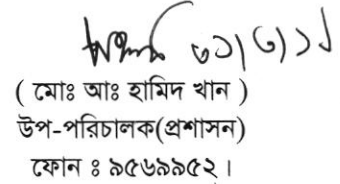 ৩১/৩/১৮
( মোঃ আঃ হামিদ খান )
উপ-পরিচালক(প্রশাসন)
ফোন ঃ ৯৫৬৯৯৫২।